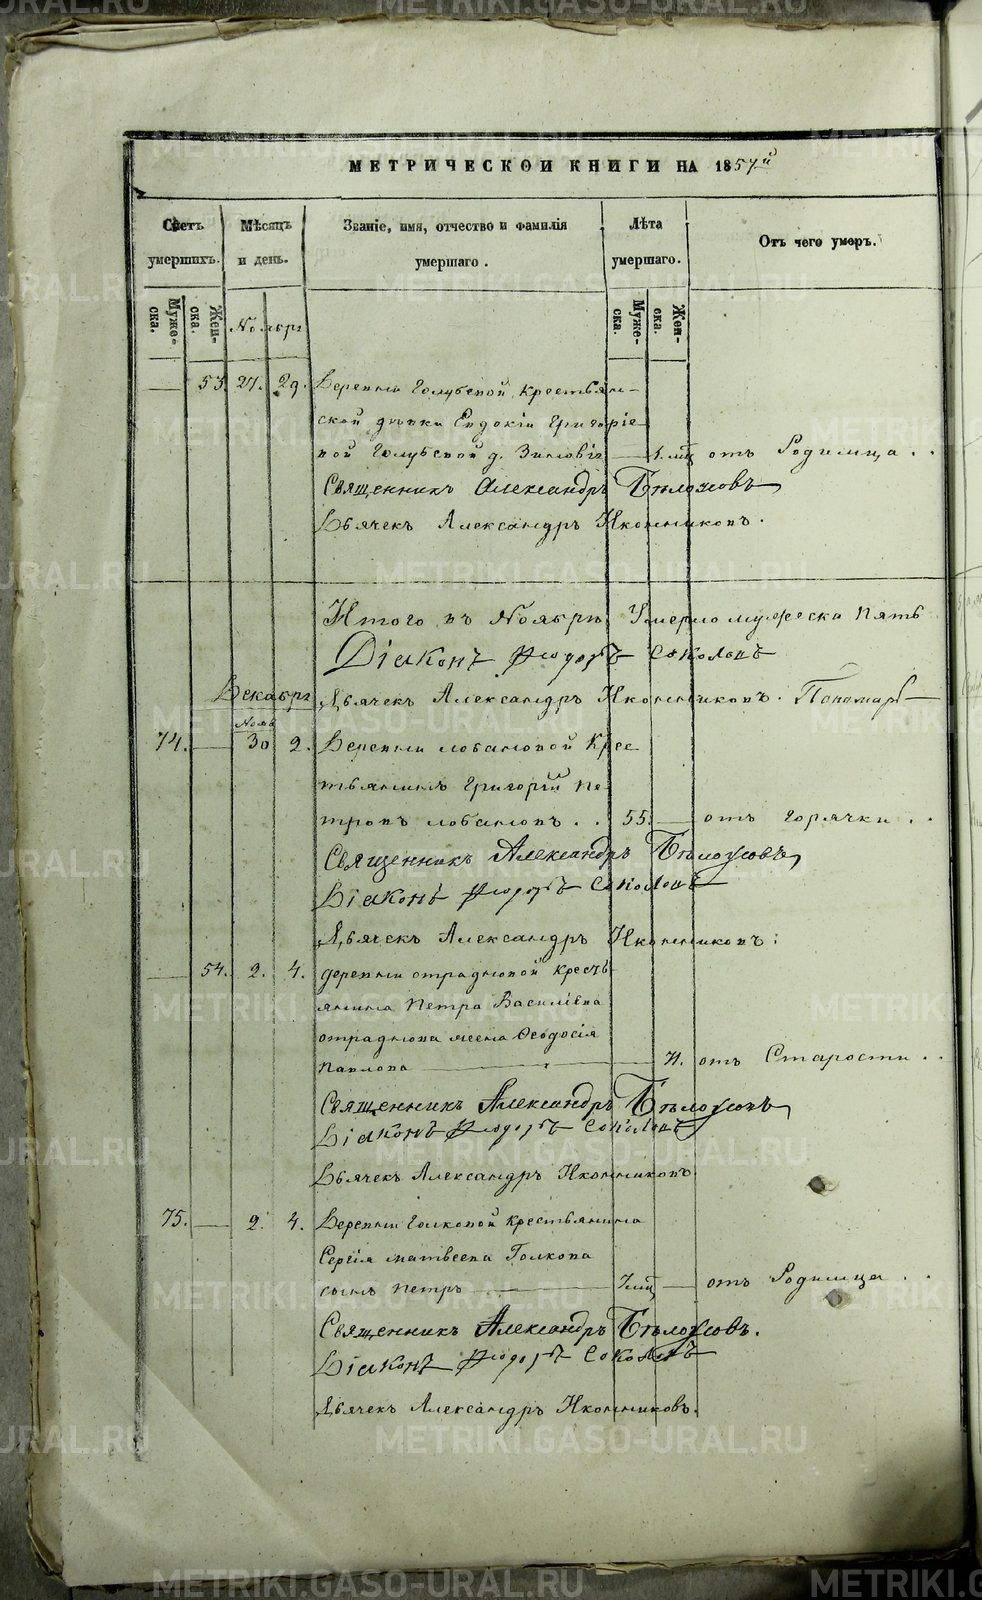 МЕТРИЧЕСКОЙ КНИГИ НА 1857й
Счетъ умершихъ.
Мѣсяцъ и день.
Званіе, имя, отчество и фамилія умершаго.
Лѣта умершаго.
Отъ чего умеръ.
Муже-ска.
Жен-ска.
Ноябрь
Муже-ска.
Жен-ска.
— 53. 27. 29. Деревни Голубевой, крестьян-
ской дѣвки Евдокіи Григорie-
вой Голубевой д. Зиновія — 1. мц отъ Родимца . .
Священникъ Александръ Бѣлоусовъ
Дьячекъ Александръ Иконниковъ.
Итого въ Ноябрѣ Умерло мужеска пять
Діаконъ Ѳеодоръ Соколовъ
Декабрь Дьячекъ Александръ Иконниковъ. Пономарь —
Нояб
74. — 30 2. Деревни лобановой Крес
тьянинъ Григорій Пе-
тровъ лобановъ . . 55. — отъ горячки . .
Священникъ Александръ Бѣлоусовъ
Діаконъ Ѳеодоръ Соколовъ
Дьячекъ Александръ Иконниковъ:
— 54. 2. 4. деревни отрадновой кресть
янина Петра Васильева
отраднова жена Ѳеодосія
Павлова — отъ Старости . .
Священникъ Александръ Бѣлоусовъ
Діаконъ Ѳеодоръ Соколовъ
Дьячекъ Александръ Иконниковъ
75. — 2. 4. Деревни Голковой крестьянина
Сергія матвеева Голкова
сынъ Петръ — 7 мц — отъ Родимца . .
Священникъ Александръ Бѣлоусовъ.
Діаконъ Ѳеодоръ Соколовъ
Дьячекъ Александръ Иконниковъ.
METRIKI.GASO-URAL.RU